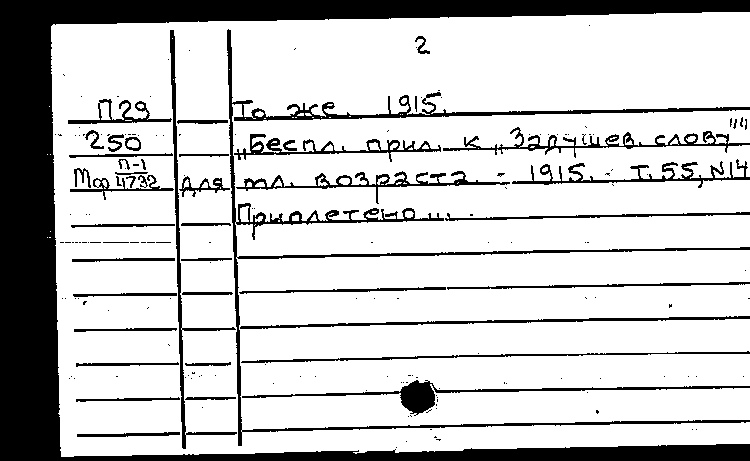 2
П29 То же. 1915.
250 „Беспл. прил. к „Задушев. слову""
Тср П-1/4732 для мл. возраста. - 1915. - Т. 55, N 14
Приплетено...